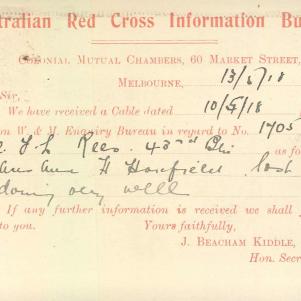 tralian Red Cross Information Bu
Colonial Mutual Chambers, 60 Market Street,
Melbourne, 13/6/18
Sir,
We have received a Cable dated 10/5/18
on W. & M. Enquiry Bureau in regard to No. 1705
Rees 43rd Btn as fo
lost
doing very well
If any further information is received we shall f
to you. Yours faithfully,
J. BEACHAM KIDDLE,
Hon. Secr